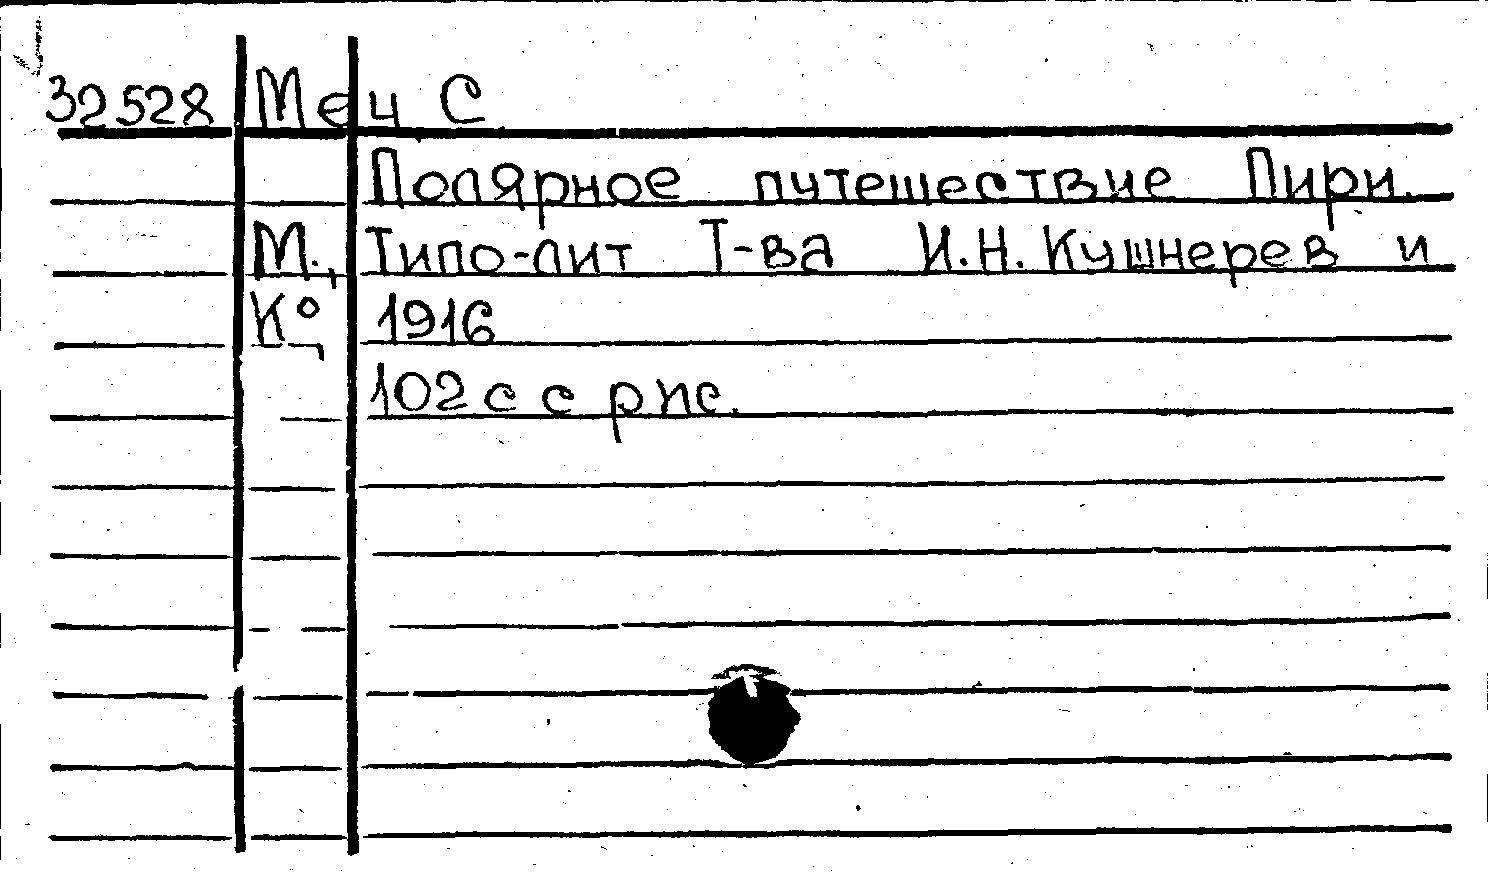 32528 Меч С
Полярное путешествие Пири.
М., Типо-лит Т-ва И.Н. Кушнерев и
К°, 1916
102 с с рис.